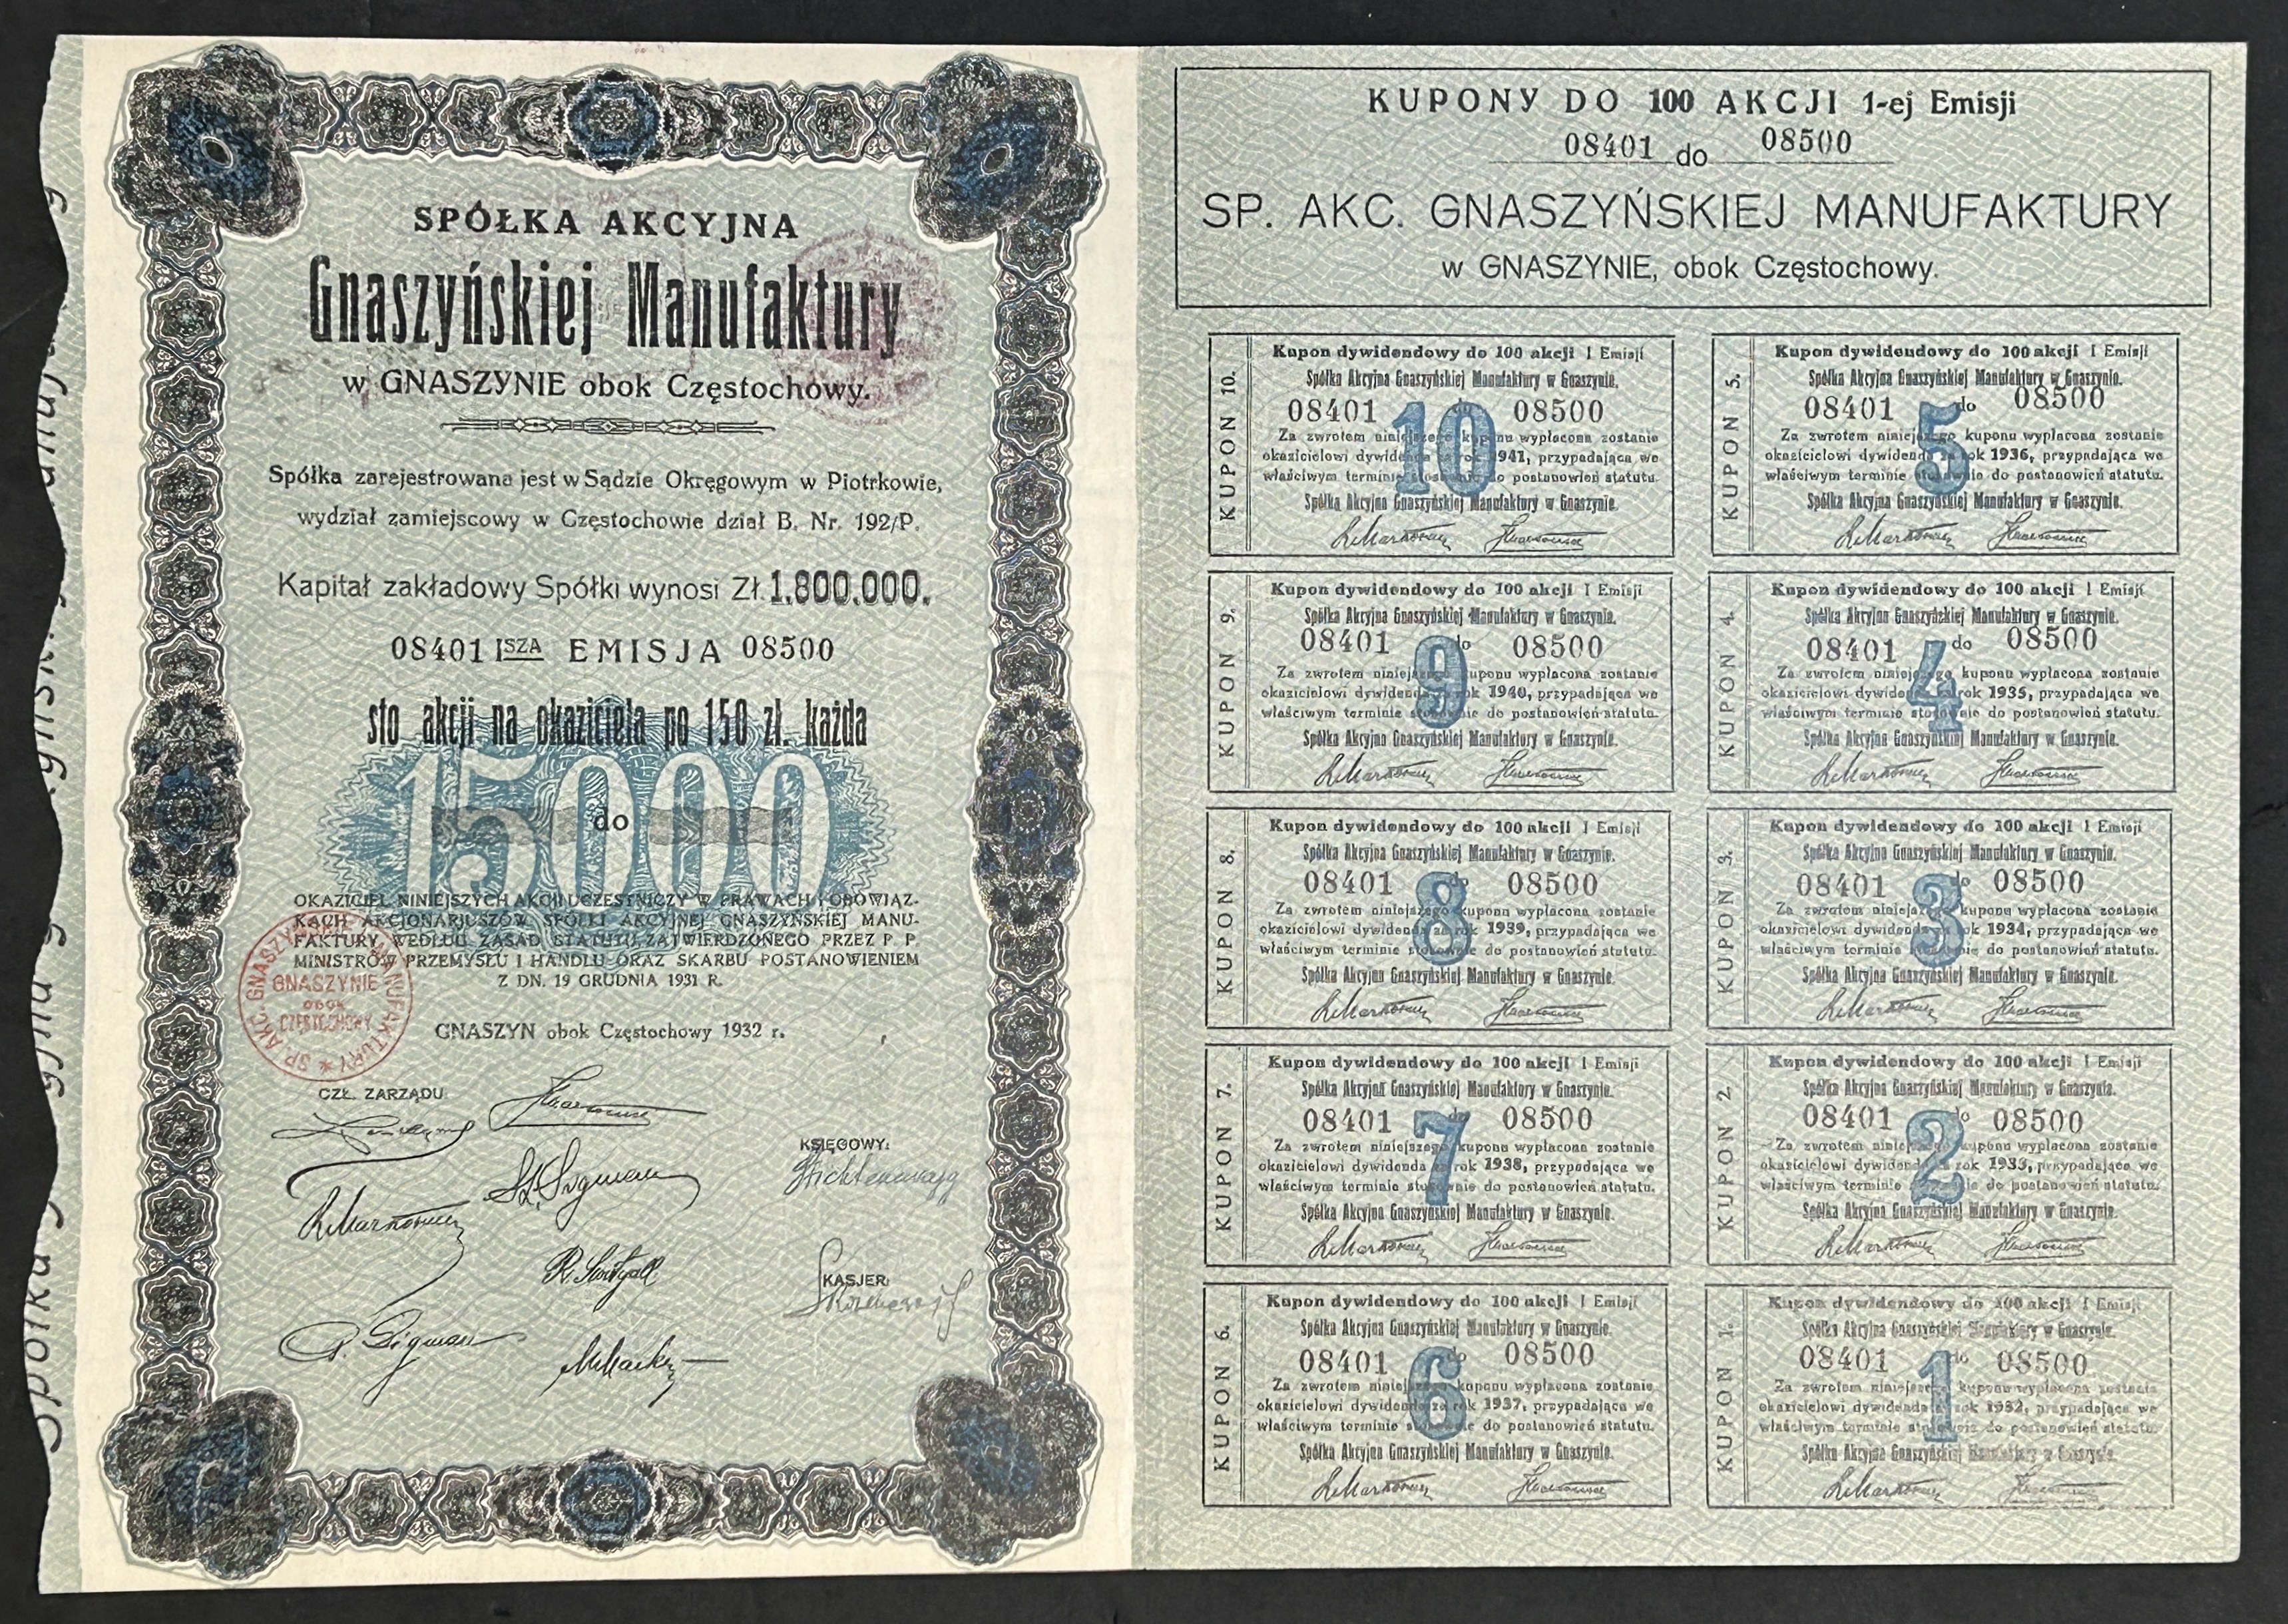 SPÓŁKA AKCYJNA
Gnaszyńskiej Manufaktury
w GNASZYNIE obok Częstochowy.
Spółka zarejestrowana jest w Sądzie Okręgowym w Piotrkowie,
wydział zamiejscowy w Częstochowie dział B. Nr. 192/P.
Kapitał zakładowy Spółki wynosi Zł. 1.800.000.
08401 ISZA EMISJA 08500
sto akcji na okaziciela po 150 zł. każda
15000
do
OKAZICIEL NINIEJSZYCH AKCJI UCZESTNICZY W PRAWACH I OBOWIĄZ-
KACH AKCJONARJUSZÓW SPÓŁKI AKCYJNEJ GNASZYŃSKIEJ MANU-
FAKTURY WEDŁUG ZASAD STATUTU ZATWIERDZONEGO PRZEZ P. P.
MINISTRÓW PRZEMYSŁU I HANDLU ORAZ SKARBU POSTANOWIENIEM
Z DN. 19 GRUDNIA 1931 R.
GNASZYN obok Częstochowy 1932 r.
SP. AKC. GNASZYŃSKIEJ MANUFAKTURY
GNASZYNIE
obok
CZĘSTOCHOWY
CZŁ. ZARZĄDU
KSIĘGOWY:
KASJER:
KUPONY DO 100 AKCJI 1-ej Emisji
08401 do 08500
SP. AKC. GNASZYŃSKIEJ MANUFAKTURY
w GNASZYNIE, obok Częstochowy.
KUPON 10.
Kupon dywidendowy do 100 akcji I Emisji
Spółka Akcyjna Gnaszyńskiej Manufaktury w Gnaszynie.
08401 do 08500
10
Za zwrotem niniejszego kuponu wypłacona zostanie
okazicielowi dywidenda za rok 1941, przypadająca we
właściwym terminie stosownie do postanowień statutu.
Spółka Akcyjna Gnaszyńskiej Manufaktury w Gnaszynie.
KUPON 5.
Kupon dywidendowy do 100 akcji I Emisji
Spółka Akcyjna Gnaszyńskiej Manufaktury w Gnaszynie.
08401 do 08500
5
Za zwrotem niniejszego kuponu wypłacona zostanie
okazicielowi dywidenda za rok 1936, przypadająca we
właściwym terminie stosownie do postanowień statutu.
Spółka Akcyjna Gnaszyńskiej Manufaktury w Gnaszynie.
KUPON 9.
Kupon dywidendowy do 100 akcji I Emisji
Spółka Akcyjna Gnaszyńskiej Manufaktury w Gnaszynie.
08401 do 08500
9
Za zwrotem niniejszego kuponu wypłacona zostanie
okazicielowi dywidenda za rok 1940, przypadająca we
właściwym terminie stosownie do postanowień statutu.
Spółka Akcyjna Gnaszyńskiej Manufaktury w Gnaszynie.
KUPON 4.
Kupon dywidendowy do 100 akcji I Emisji
Spółka Akcyjna Gnaszyńskiej Manufaktury w Gnaszynie.
08401 do 08500
4
Za zwrotem niniejszego kuponu wypłacona zostanie
okazicielowi dywidenda za rok 1935, przypadająca we
właściwym terminie stosownie do postanowień statutu.
Spółka Akcyjna Gnaszyńskiej Manufaktury w Gnaszynie.
KUPON 8.
Kupon dywidendowy do 100 akcji I Emisji
Spółka Akcyjna Gnaszyńskiej Manufaktury w Gnaszynie.
08401 do 08500
8
Za zwrotem niniejszego kuponu wypłacona zostanie
okazicielowi dywidenda za rok 1939, przypadająca we
właściwym terminie stosownie do postanowień statutu.
Spółka Akcyjna Gnaszyńskiej Manufaktury w Gnaszynie.
KUPON 3.
Kupon dywidendowy do 100 akcji I Emisji
Spółka Akcyjna Gnaszyńskiej Manufaktury w Gnaszynie.
08401 do 08500
3
Za zwrotem niniejszego kuponu wypłacona zostanie
okazicielowi dywidenda za rok 1934, przypadająca we
właściwym terminie stosownie do postanowień statutu.
Spółka Akcyjna Gnaszyńskiej Manufaktury w Gnaszynie.
KUPON 7.
Kupon dywidendowy do 100 akcji I Emisji
Spółka Akcyjna Gnaszyńskiej Manufaktury w Gnaszynie.
08401 do 08500
7
Za zwrotem niniejszego kuponu wypłacona zostanie
okazicielowi dywidenda za rok 1938, przypadająca we
właściwym terminie stosownie do postanowień statutu.
Spółka Akcyjna Gnaszyńskiej Manufaktury w Gnaszynie.
KUPON 2.
Kupon dywidendowy do 100 akcji I Emisji
Spółka Akcyjna Gnaszyńskiej Manufaktury w Gnaszynie.
08401 do 08500
2
Za zwrotem niniejszego kuponu wypłacona zostanie
okazicielowi dywidenda za rok 1933, przypadająca we
właściwym terminie stosownie do postanowień statutu.
Spółka Akcyjna Gnaszyńskiej Manufaktury w Gnaszynie.
KUPON 6.
Kupon dywidendowy do 100 akcji I Emisji
Spółka Akcyjna Gnaszyńskiej Manufaktury w Gnaszynie.
08401 do 08500
6
Za zwrotem niniejszego kuponu wypłacona zostanie
okazicielowi dywidenda za rok 1937, przypadająca we
właściwym terminie stosownie do postanowień statutu.
Spółka Akcyjna Gnaszyńskiej Manufaktury w Gnaszynie.
KUPON 1.
Kupon dywidendowy do 100 akcji I Emisji
Spółka Akcyjna Gnaszyńskiej Manufaktury w Gnaszynie.
08401 do 08500
1
Za zwrotem niniejszego kuponu wypłacona zostanie
okazicielowi dywidenda za rok 1932, przypadająca we
właściwym terminie stosownie do postanowień statutu.
Spółka Akcyjna Gnaszyńskiej Manufaktury w Gnaszynie.